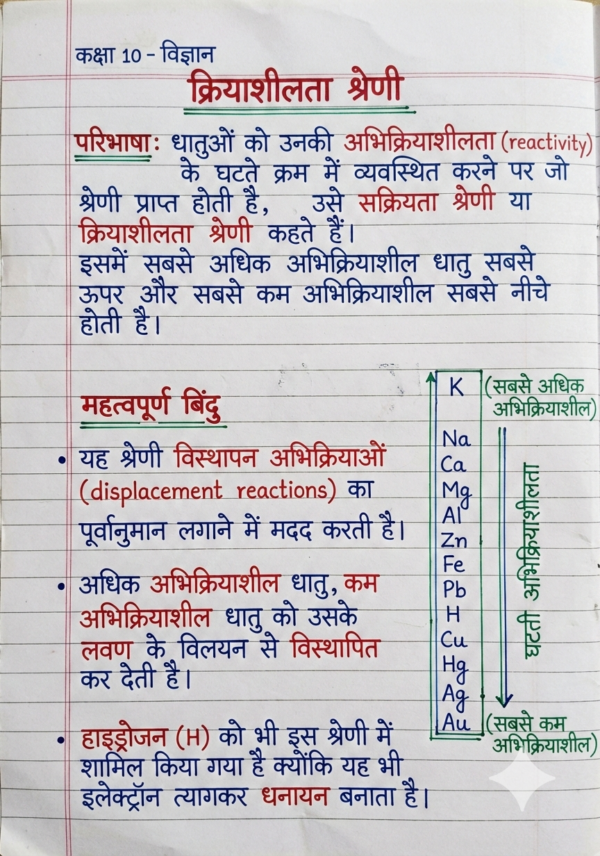 कक्षा 10 - विज्ञान
क्रियाशीलता श्रेणी
परिभाषा: धातुओं को उनकी अभिक्रियाशीलता (reactivity)
के घटते क्रम में व्यवस्थित करने पर जो
श्रेणी प्राप्त होती है, उसे सक्रियता श्रेणी या
क्रियाशीलता श्रेणी कहते हैं।
इसमें सबसे अधिक अभिक्रियाशील धातु सबसे
ऊपर और सबसे कम अभिक्रियाशील सबसे नीचे
होती है।
महत्वपूर्ण बिंदु
• यह श्रेणी विस्थापन अभिक्रियाओं
(displacement reactions) का
पूर्वानुमान लगाने में मदद करती है।
• अधिक अभिक्रियाशील धातु, कम
अभिक्रियाशील धातु को उसके
लवण के विलयन से विस्थापित
कर देती है।
• हाइड्रोजन (H) को भी इस श्रेणी में
शामिल किया गया है क्योंकि यह भी
इलेक्ट्रॉन त्यागकर धनायन बनाता है।
K (सबसे अधिक
अभिक्रियाशील)
Na
Ca
Mg
Al
Zn
Fe
Pb
H
Cu
Hg
Ag
Au (सबसे कम
अभिक्रियाशील)
घटती अभिक्रियाशीलता